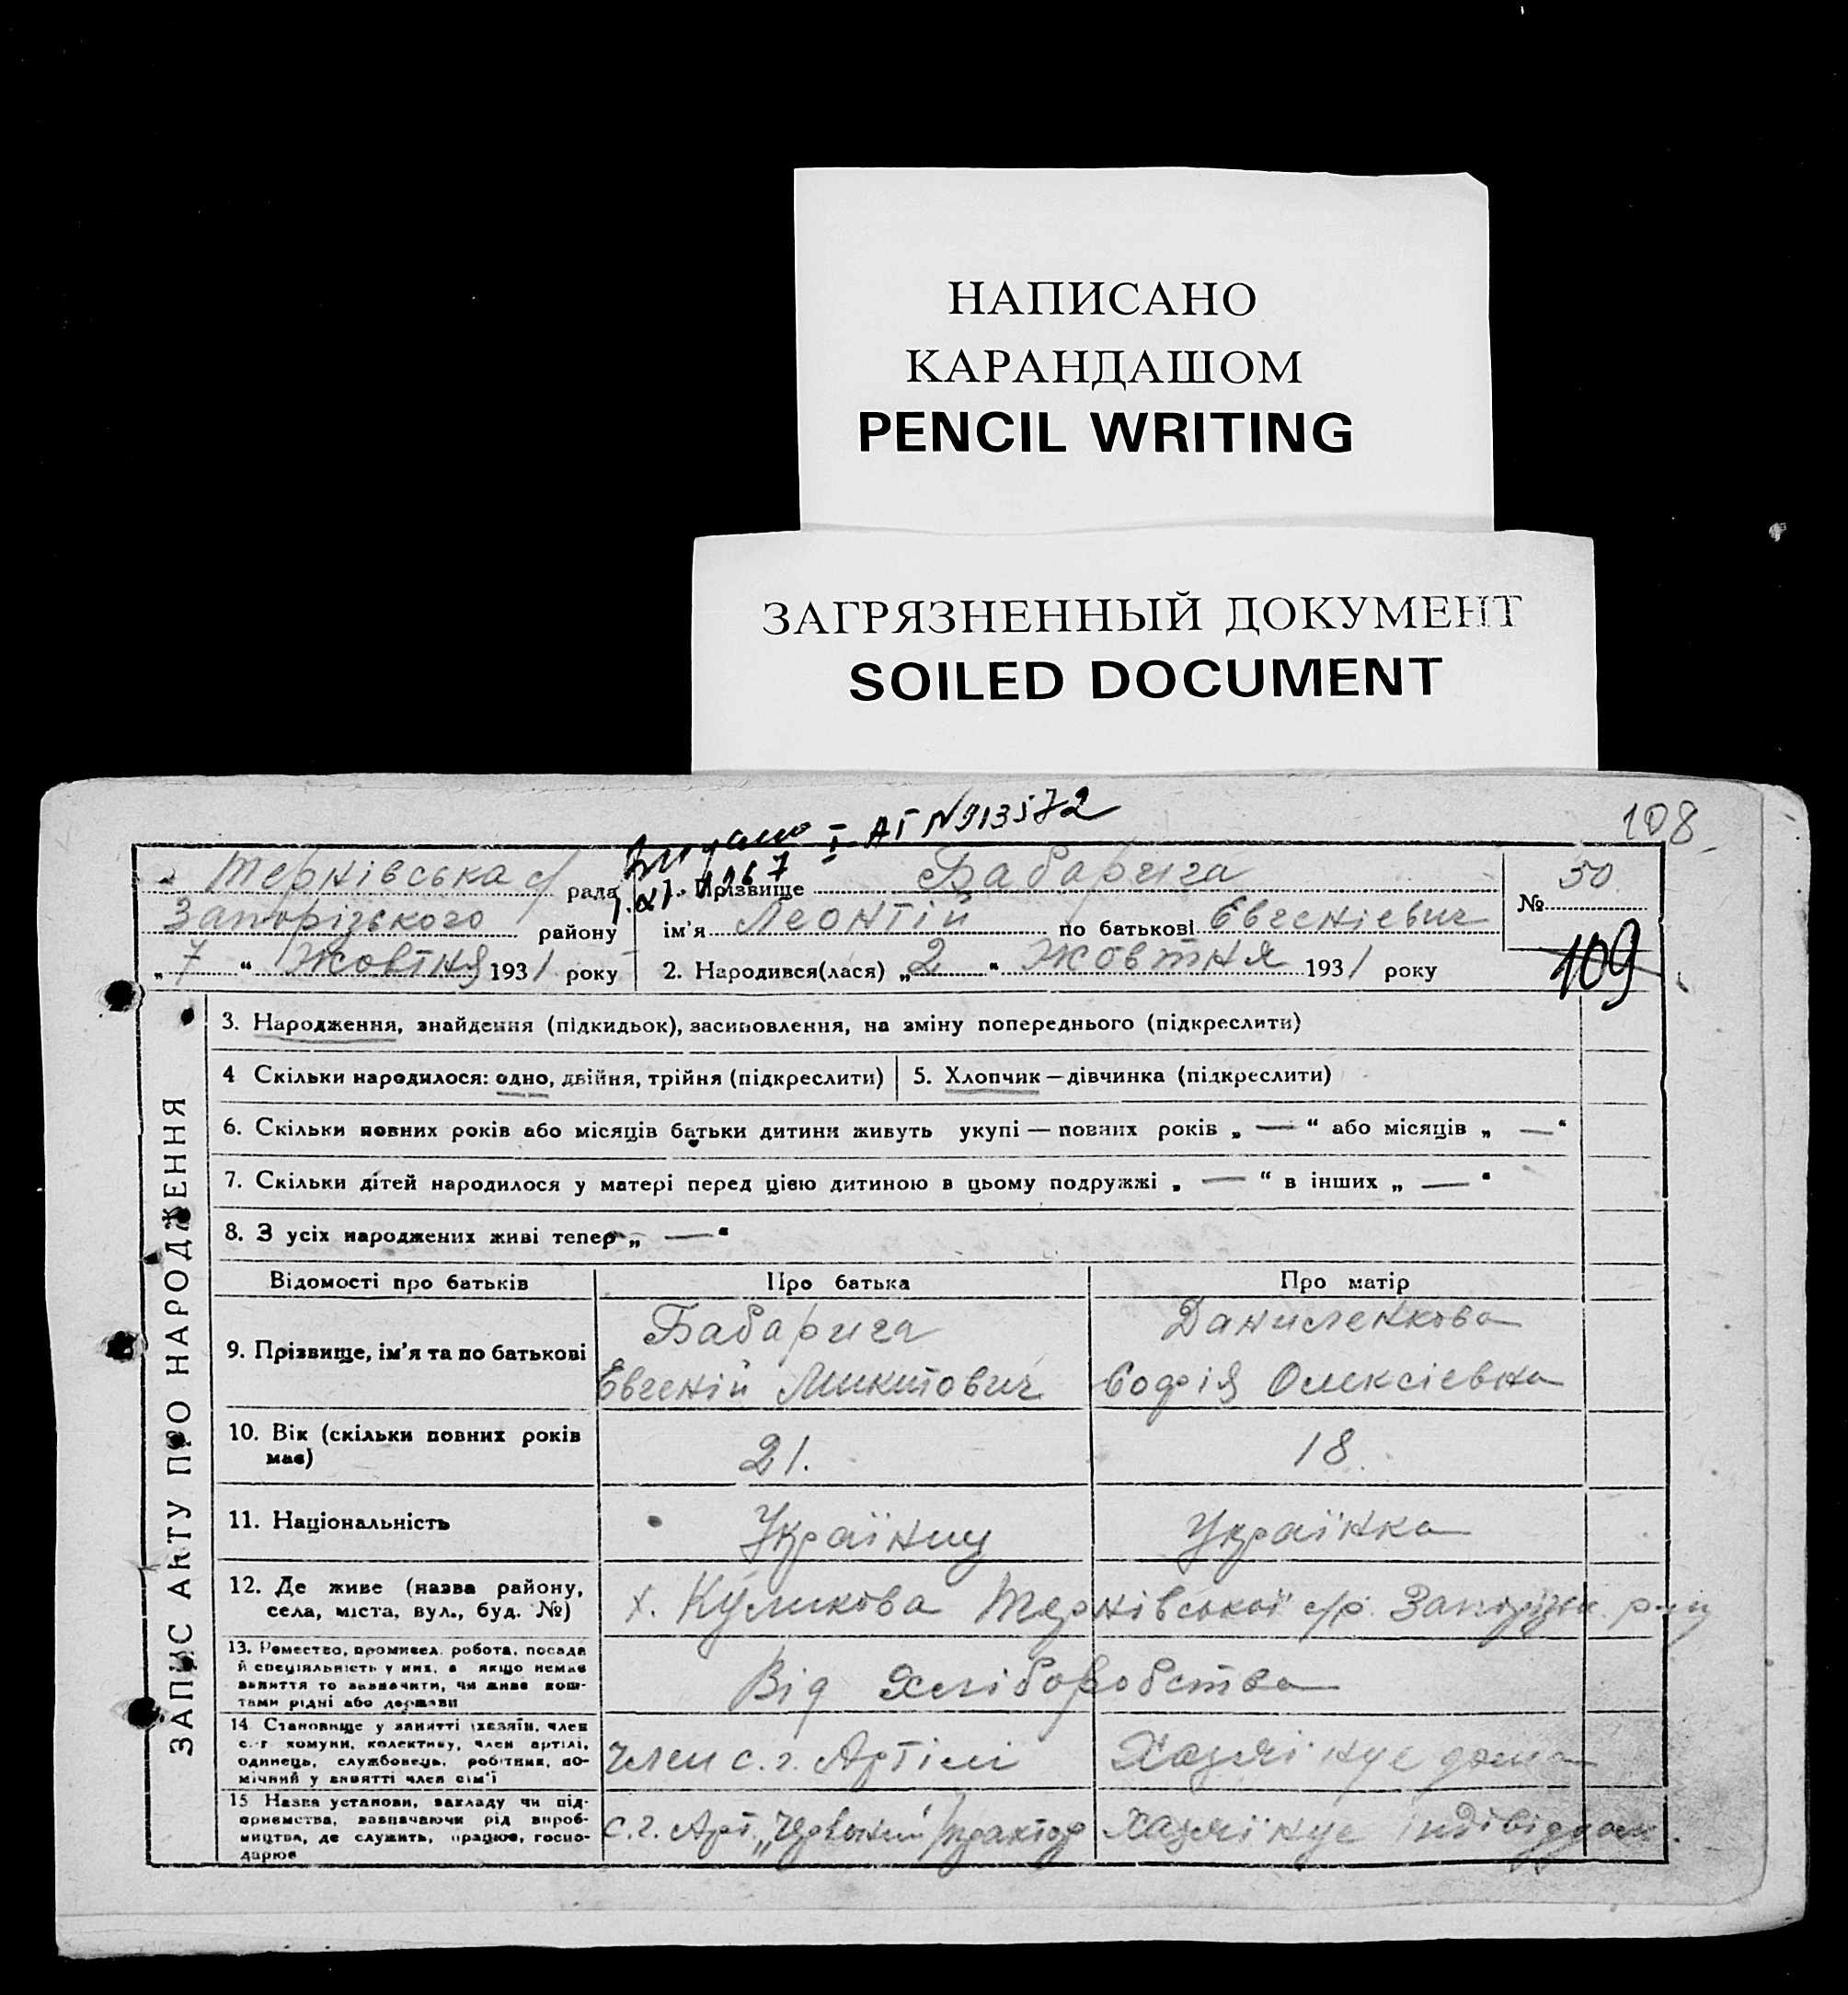 НАПИСАНО
КАРАНДАШОМ
PENCIL WRITING
ЗАГРЯЗНЕННЫЙ ДОКУМЕНТ
SOILED DOCUMENT
108
Видано I-АГ N 913572
Тернівська с/ рада
Запорізького району
„7“ Жовтня 1931 року
Прізвище Бабарига
ім'я Леонтій по батькові Евгеніевич
2. Народився(лася) „2“ Жовтня 1931 року
№ 50
109
ЗАПИС АКТУ ПРО НАРОДЖЕННЯ
3. Народження, знайдення (підкидьок), засиновлення, на зміну попереднього (підкреслити)
4 Скільки народилося: одно, двійня, трійня (підкреслити) 5. Хлопчик — дівчинка (підкреслити)
6. Скільки повних років або місяців батьки дитини живуть укупі — повних років „ — “ або місяців „ — “
7. Скільки дітей народилося у матері перед цією дитиною в цьому подружжі „ — “ в інших „ — “
8. З усіх народжених живі тепер „ — “
Відомості про батьків Про батька Про матір
9. Прізвище, ім'я та по батькові
Бабарига
Евгеній Микитович
Даниленкова
Софія Олексіевна
10. Вік (скільки повних років
має)
21. 18
11. Національність Українец Українка
12. Де живе (назва району,
села, міста, вул., буд. №)
х. Куликова Тернівської с/р. Запорізьк. р-ну
13. Ремество, промисел, робота, посада
й спеціяльність у них, а якщо немає
заняття то зазначити, чи живе кош-
тами рідні або держави
Від хліборобства
14 Становище у занятті (хазяїн, член
с.-г комуни, колективу, член артілі,
одинець, службовець, робітник, по-
мічний у занятті член сім'ї
член с. г. Артілі Хазяїнуе дома
15 Назва установи, закладу чи під-
приємства, зазначаючи рід вироб-
ництва, де служить, працює, госпо-
дарює
с. г. Арт. „Червоний Трактор Хазяїнуе індівідуал.